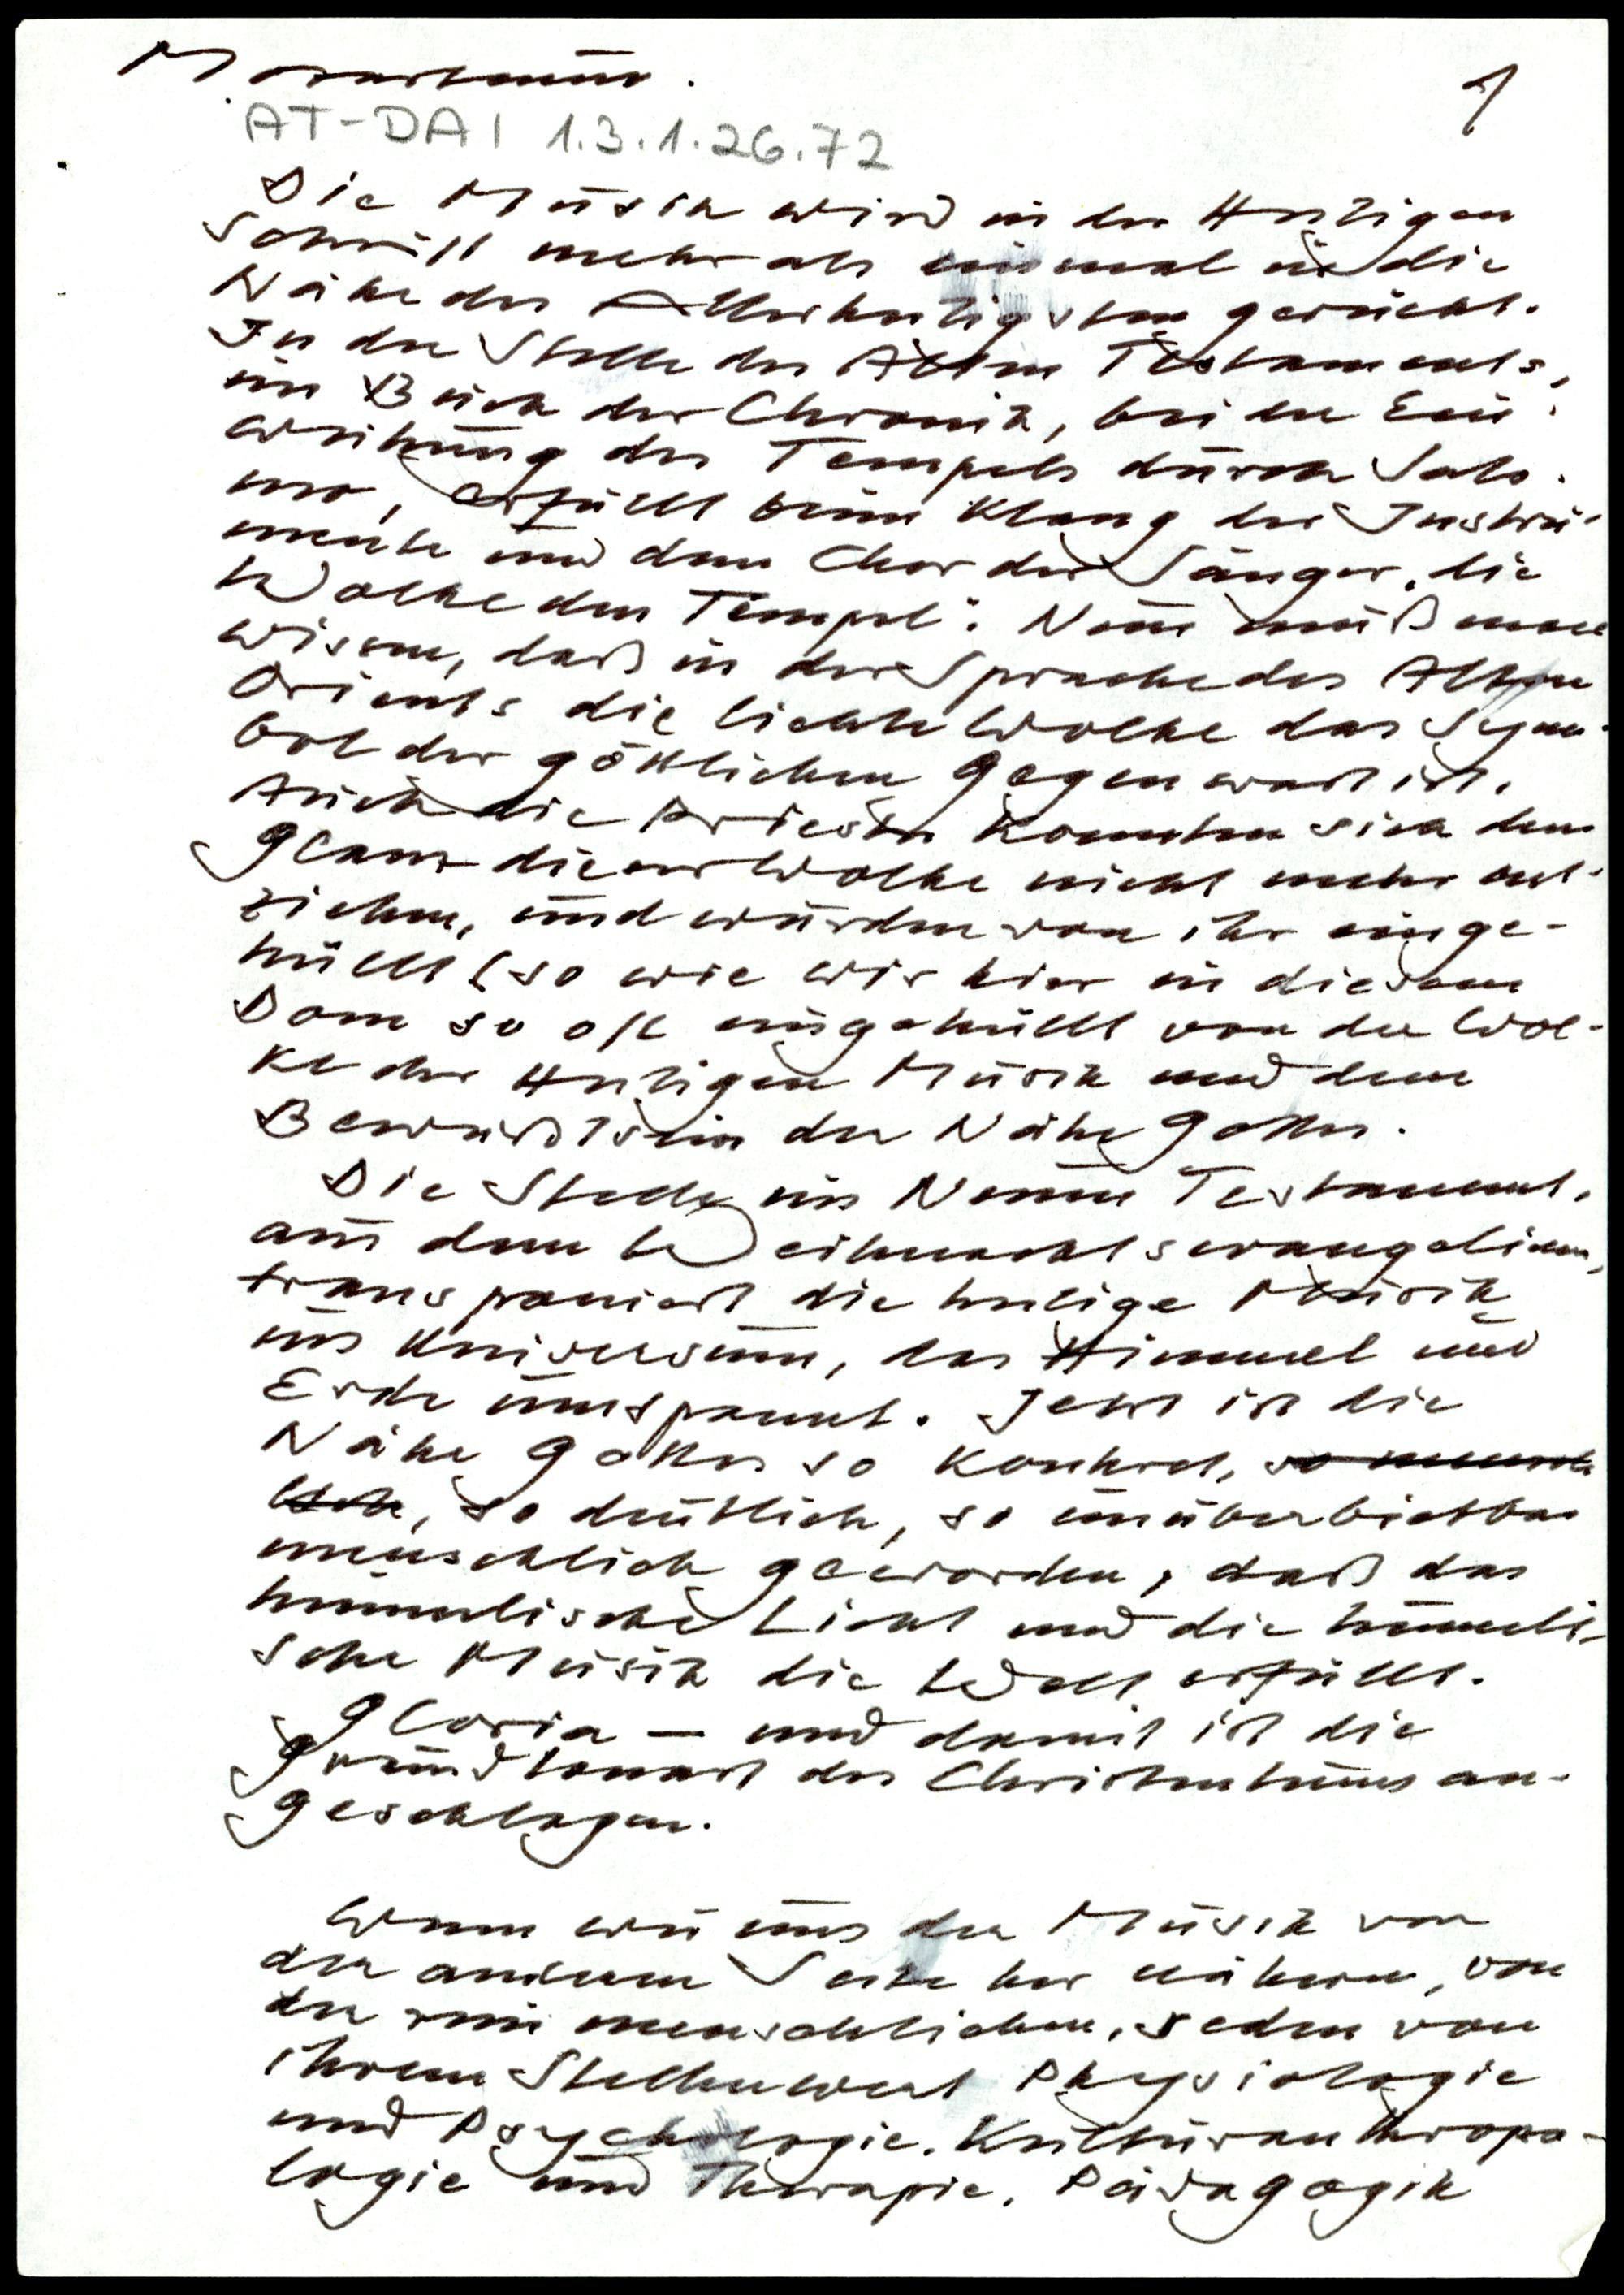 Mozarteum. 1
AT-DAI 1.3.1.26.72
Die Musik wird in der Heiligen
Schrift mehr als einmal in die
Nähe des Allerheiligsten gerückt.
In der Stelle des Alten Testaments,
im Buch der Chronik, bei der Ein-
weihung des Tempels durch Salo-
mo, erfüllt beim Klang der Instru-
mente und dem Chor der Sänger „die
Wolke den Tempel". Nun muß man
wissen, daß in der Sprache des Alten
Orients die lichte Wolke das Sym-
bol der göttlichen Gegenwart ist.
Auch die Priester konnten sich dem
Glanz dieser Wolke nicht mehr ent-
ziehen, und wurden von ihr einge-
hüllt (so wie wir hier in diesem
Dom so oft eingehüllt von der Wol-
ke der Heiligen Musik und dem
Bewußtsein der Nähe Gottes.
Die Stelle im Neuen Testament,
aus dem Weihnachtsevangelium,
transponiert die heilige Musik
ins Universum, das Himmel und
Erde umspannt. Jetzt ist die
Nähe Gottes so konkret, so mensch
lich, so deutlich, so unüberbietbar
menschlich geworden, daß das
himmlische Licht und die himmli-
sche Musik die Welt erfüllt.
Gloria – und damit ist die
Grundtonart des Christentums an-
geschlagen.
Wenn wir uns der Musik von
der anderen Seite her nähern, von
der rein menschlichen, von
ihrem Stellenwert Physiologie
und Psychologie, Kulturanthropo-
logie und Therapie, Pädagogik